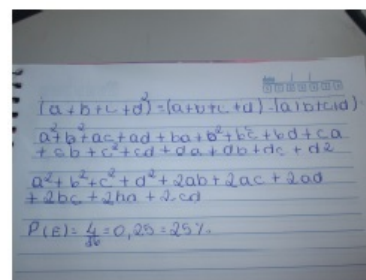 (a+b+c+d²)=(a+b+c+d)·(a)b+c+d)
a²+b²+ac+ad+ba+b²+bc+bd+ca
+cb+c²+cd+da+db+dc+d2
a²+b²+c²+d²+2ab+2ac+2ad
+2bc+2ba+2cd
P(E)=4/16=0,25=25%